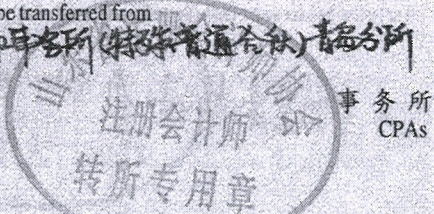 be transferred from
事务所(特殊普通合伙)青岛分所
事务所
CPAs
山 协会
注册会计师
转所专用章